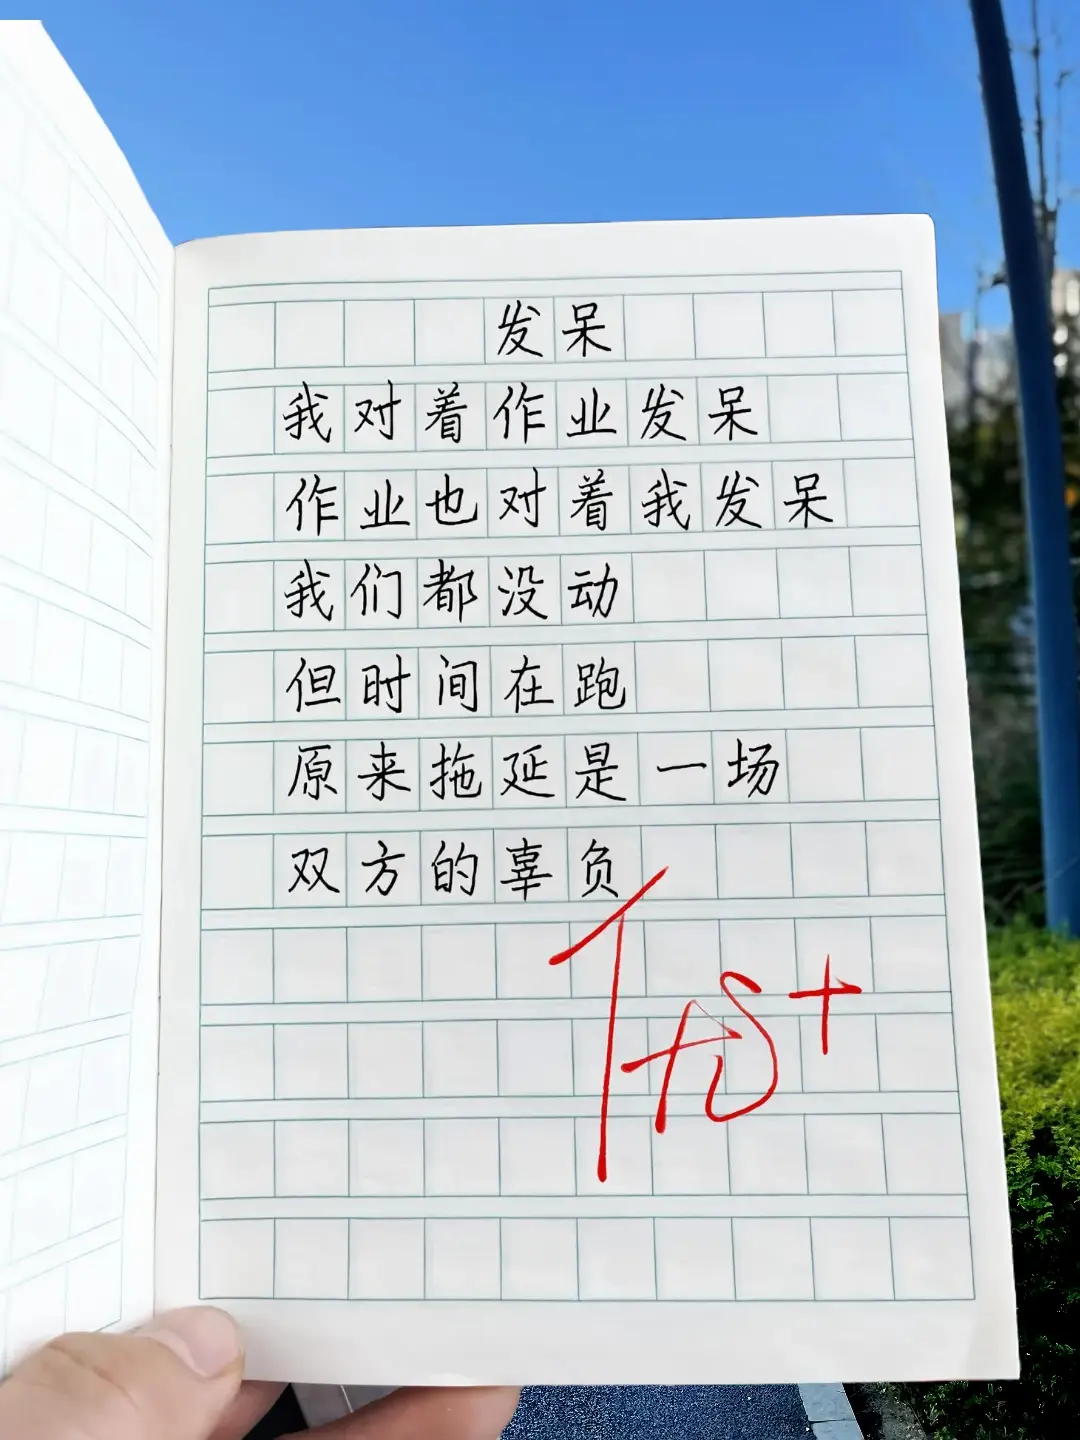 发呆
我对着作业发呆
作业也对着我发呆
我们都没动
但时间在跑
原来拖延是一场
双方的辜负